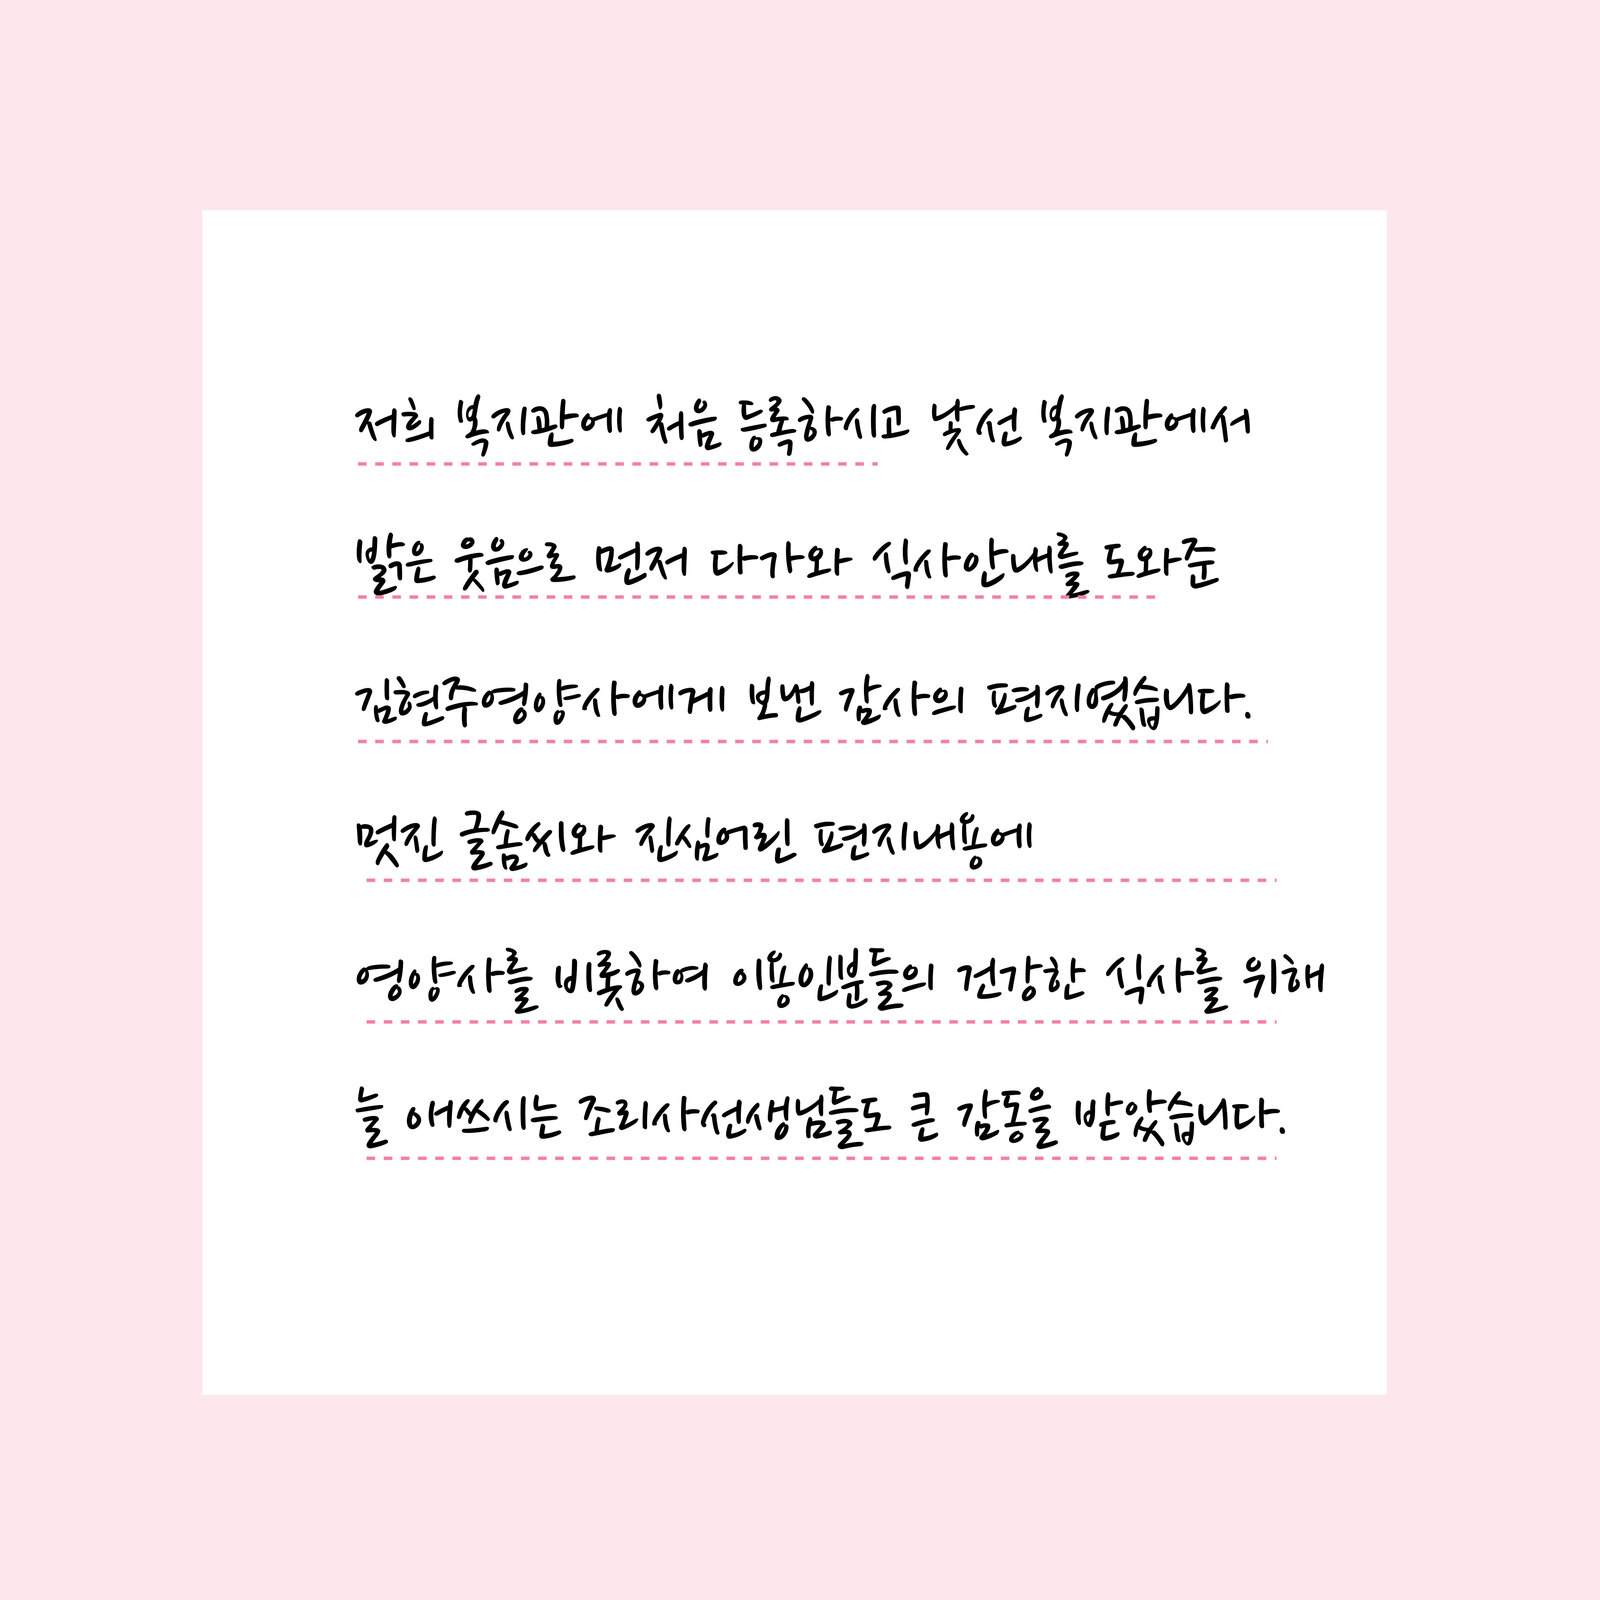 저희 복지관에 처음 등록하시고 낯선 복지관에서
밝은 웃음으로 먼저 다가와 식사안내를 도와준
김현주영양사에게 보낸 감사의 편지였습니다.
멋진 글솜씨와 진심어린 편지내용에
영양사를 비롯하여 이용인분들의 건강한 식사를 위해
늘 애쓰시는 조리사선생님들도 큰 감동을 받았습니다.